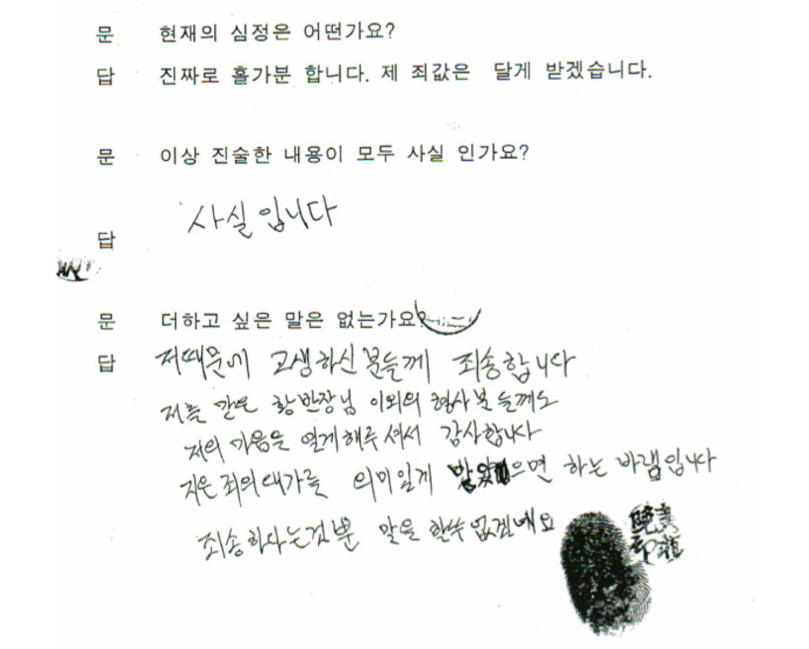 문 현재의 심정은 어떤가요?
답 진짜로 홀가분 합니다. 제 죄값은 달게 받겠습니다.
문 이상 진술한 내용이 모두 사실 인가요?
사실입니다
답
문 더하고 싶은 말은 없는가요?
답 저때문에 고생하신분들께 죄송합니다
저를 같은 황반장님 이외의 형사분들께도
저의 마음은 열게해주셔서 감사합니다
지은죄의대가를 의미있게 받았으면 하는 바램입니다
죄송하다는것뿐 말을 할수 없겠네요